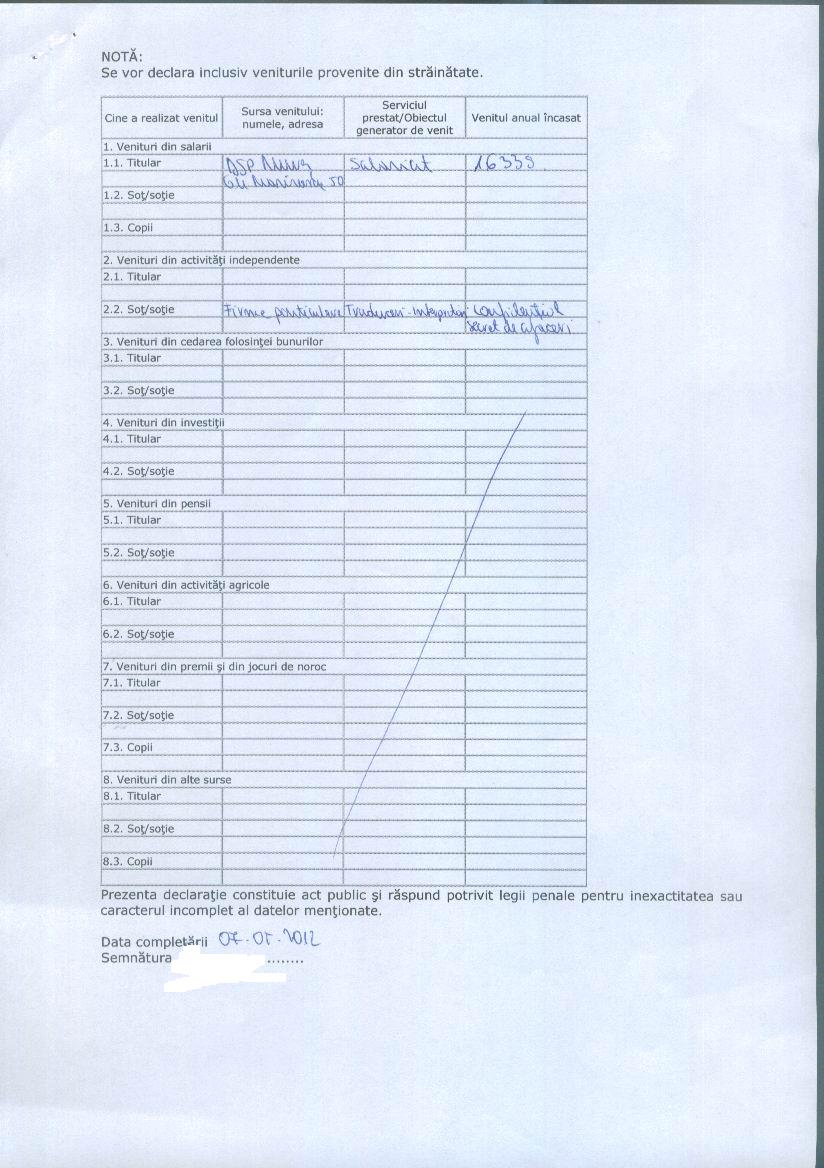 NOTĂ:
Se vor declara inclusiv veniturile provenite din străinătate.
Cine a realizat venitul
Sursa venitului:
numele, adresa
Serviciul
prestat/Obiectul
generator de venit
Venitul anual încasat
1. Venituri din salarii
1.1. Titular DSP Salariat 16339
50
1.2. Soţ/soţie
1.3. Copii
2. Venituri din activităţi independente
2.1. Titular
2.2. Soţ/soţie Firme particulare Traduceri - Confidenţial
secret de afaceri
3. Venituri din cedarea folosinţei bunurilor
3.1. Titular
3.2. Soţ/soţie
4. Venituri din investiţii
4.1. Titular
4.2. Soţ/soţie
5. Venituri din pensii
5.1. Titular
5.2. Soţ/soţie
6. Venituri din activităţi agricole
6.1. Titular
6.2. Soţ/soţie
7. Venituri din premii şi din jocuri de noroc
7.1. Titular
7.2. Soţ/soţie
7.3. Copii
8. Venituri din alte surse
8.1. Titular
8.2. Soţ/soţie
8.3. Copii
Prezenta declaraţie constituie act public şi răspund potrivit legii penale pentru inexactitatea sau
caracterul incomplet al datelor menţionate.
Data completării
Semnătura ........